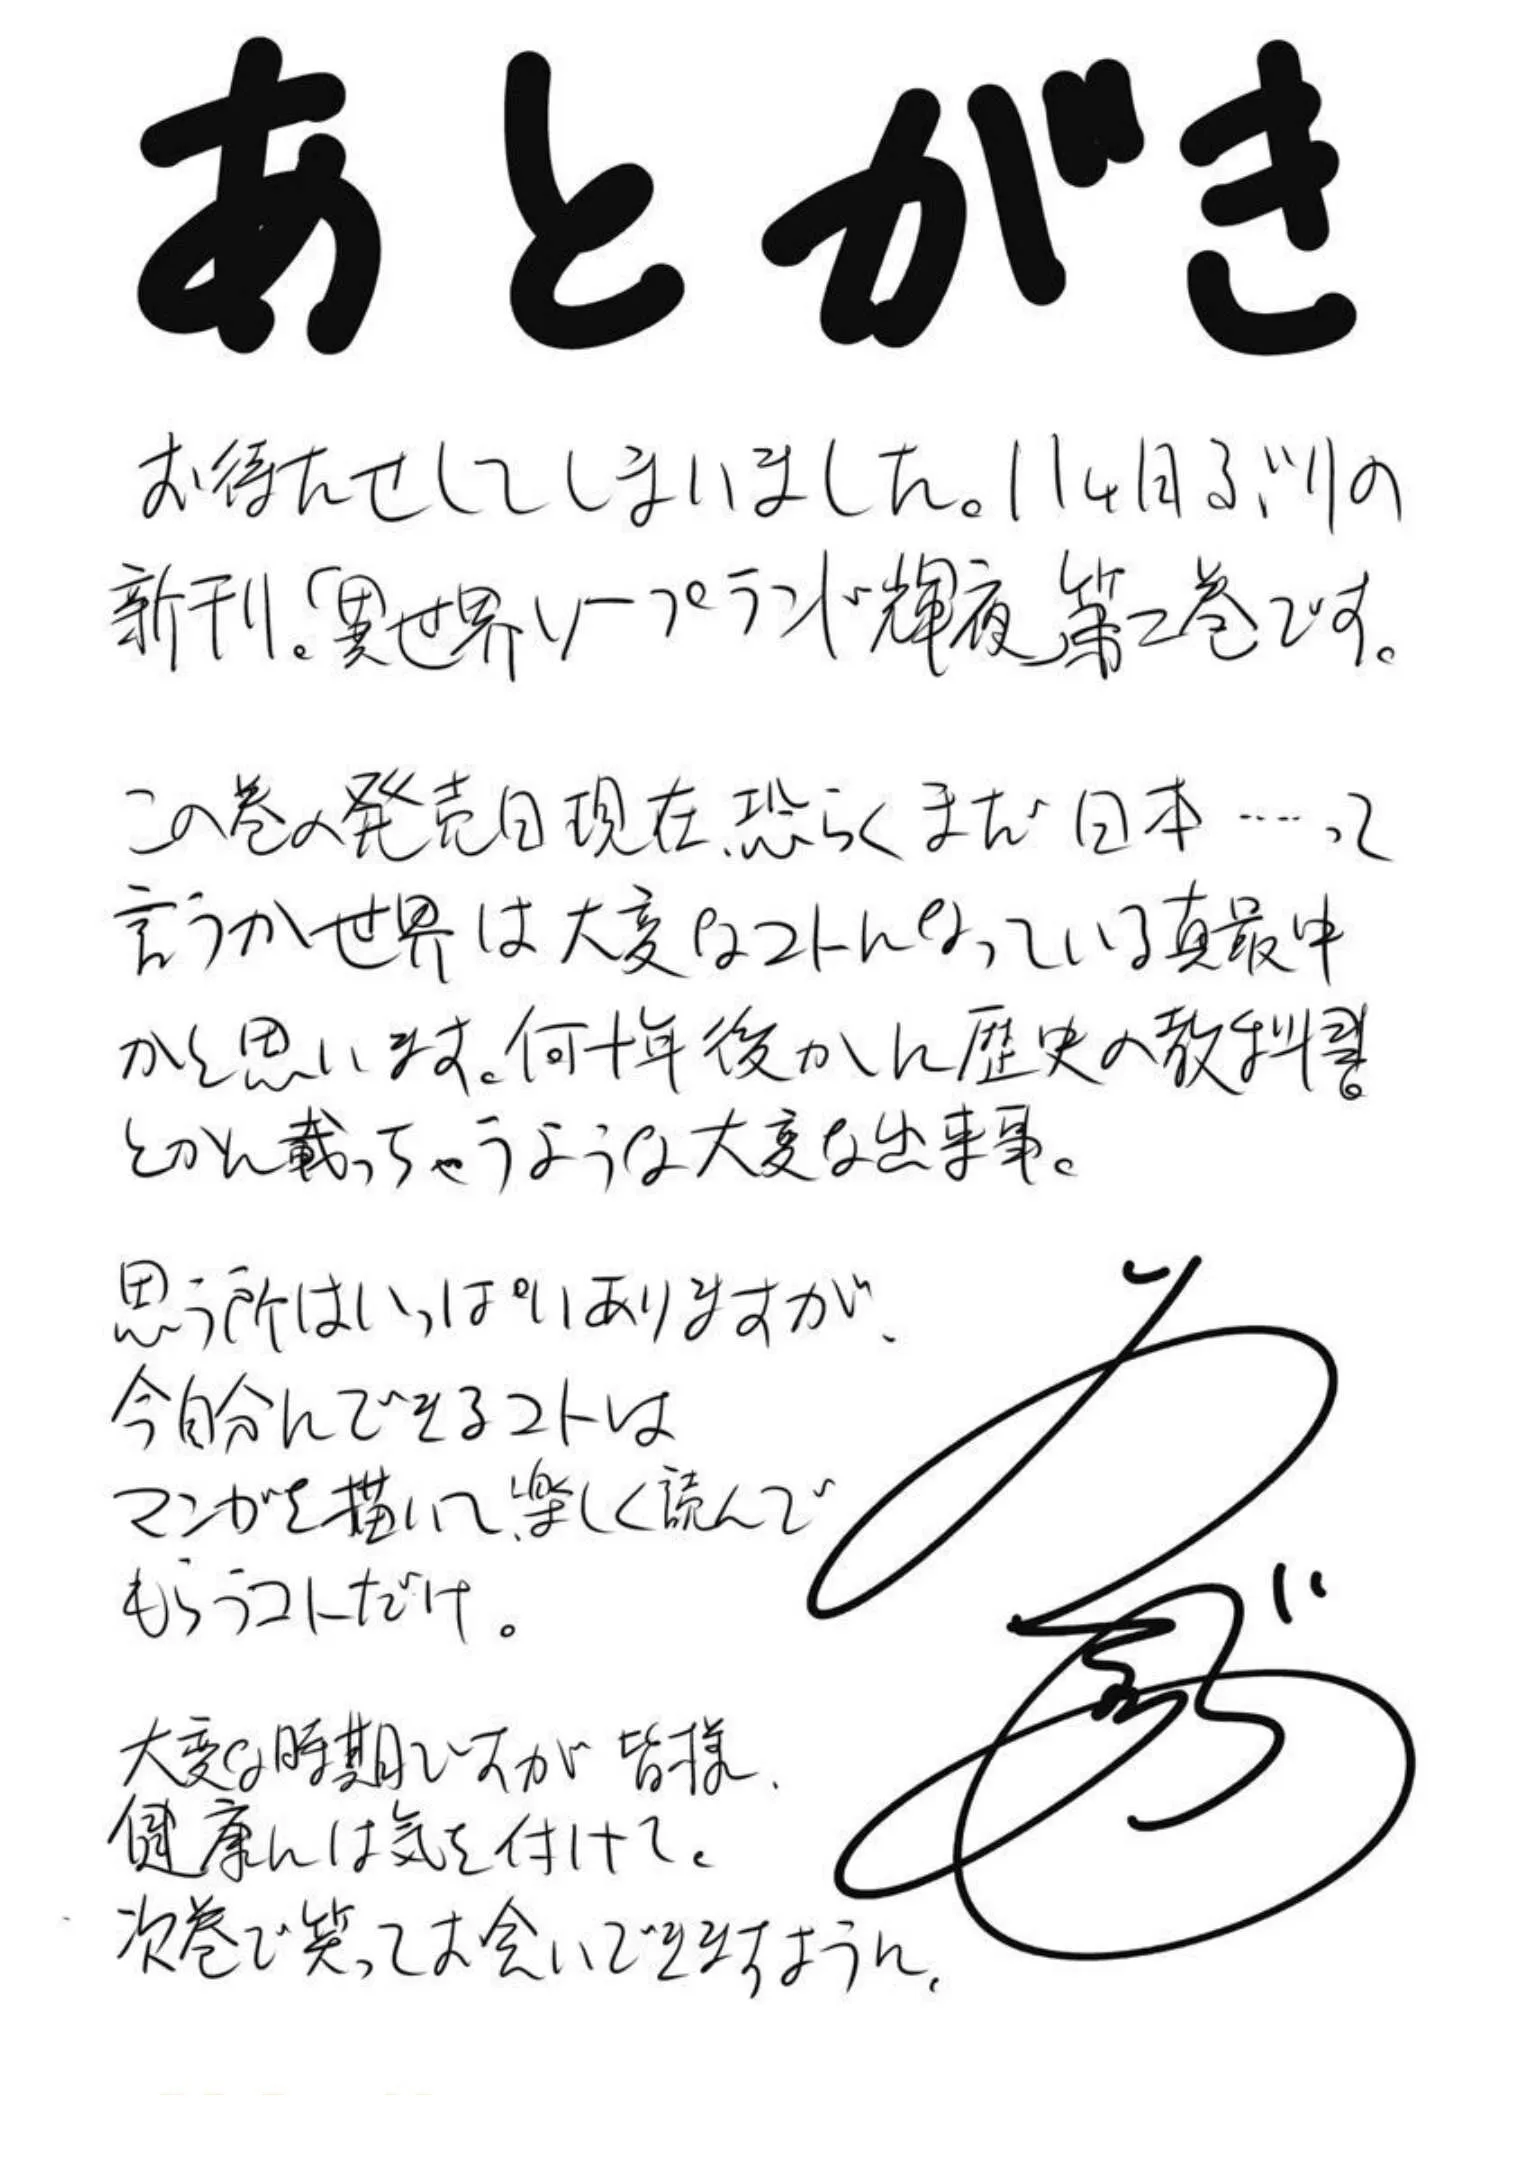 あとがき
お待たせしてしまいました。11ヶ月ぶりの
新刊。「異世界ソープランド輝夜」第二巻です。
この巻の発売日現在、恐らくまだ日本……って
言うか世界は大変なコトになっている真最中
かと思います。何十年後かに歴史の教科書
とかに載っちゃうような大変な出来事。
思う所はいっぱいありますが、
今自分にできるコトは
マンガを描いて、楽しく読んで
もらうコトだけ。
大変な時期ですが皆様、
健康には気を付けて。
次巻で笑ってお会いできますように、